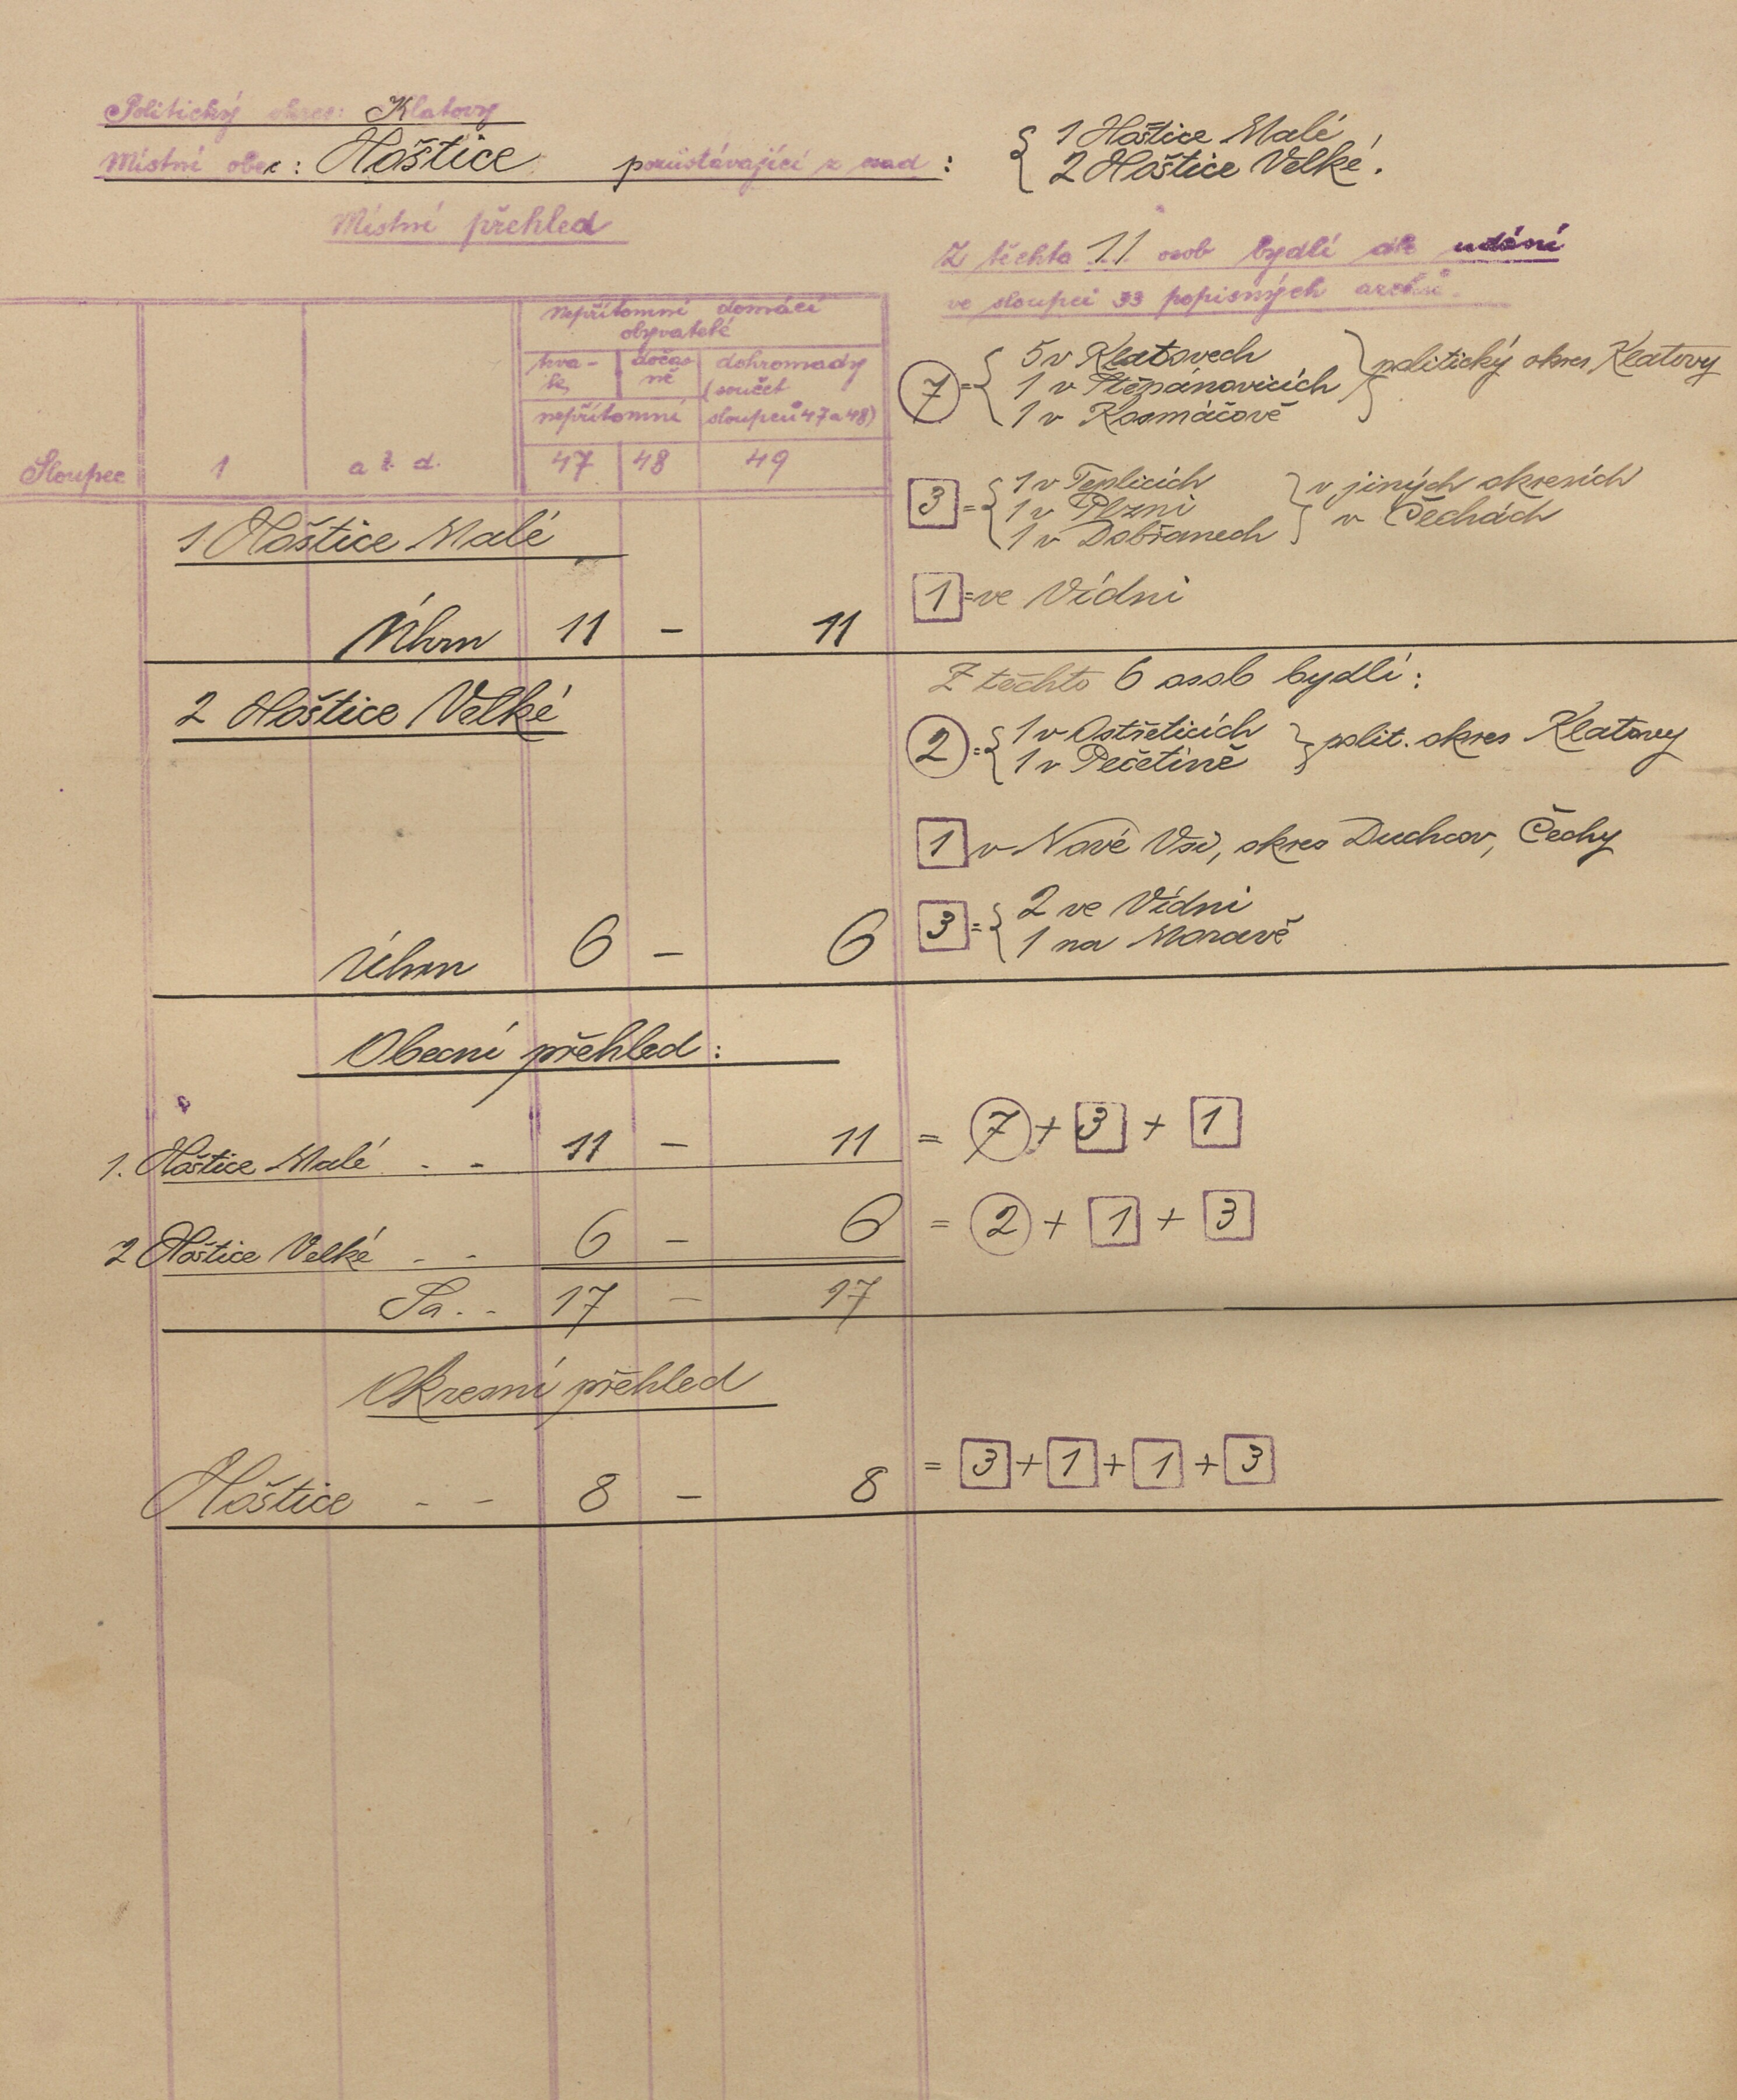 Politický okres: Klatovy
Místní obec: Hoštice pozůstávající z osad:
{ 1 Hoštice Malé
2 Hoštice Velké.
Místní přehled
Z těchto 11 osob bydlí dle udání
ve sloupci 33 popisných archů.
nepřítomní domácí
obyvatelé
trva-
le
dočas
ně
dohromady
(součet
nepřítomní
sloupců 47 a 48)
Sloupec 1 a t. d. 47 48 49
7 = { 5 v Klatovech
1 v Štěpánovicích
1 v Kosmáčově
} politický okres Klatovy
3 = { 1 v Teplicích
1 v Plzni
1 v Dobřanech
} v jiných okresích
v Čechách
1 = ve Vídni
1 Hoštice Malé
Úhrn 11 – 11
2 Hoštice Velké
Z těchto 6 osob bydlí:
2 = { 1 v Ostřeticích
1 v Pečetíně
} polit. okres Klatovy
1 v Nové Vsi, okres Duchcov, Čechy
3 = { 2 ve Vídni
1 na Moravě
Úhrn 6 – 6
Obecní přehled:
1. Hoštice Malé . - 11 – 11 = 7 + 3 + 1
2 Hoštice Velké - - 6 – 6 = 2 + 1 + 3
Sa . - 17 – 17
Okresní přehled
Hoštice - - 8 – 8 = 3 + 1 + 1 + 3